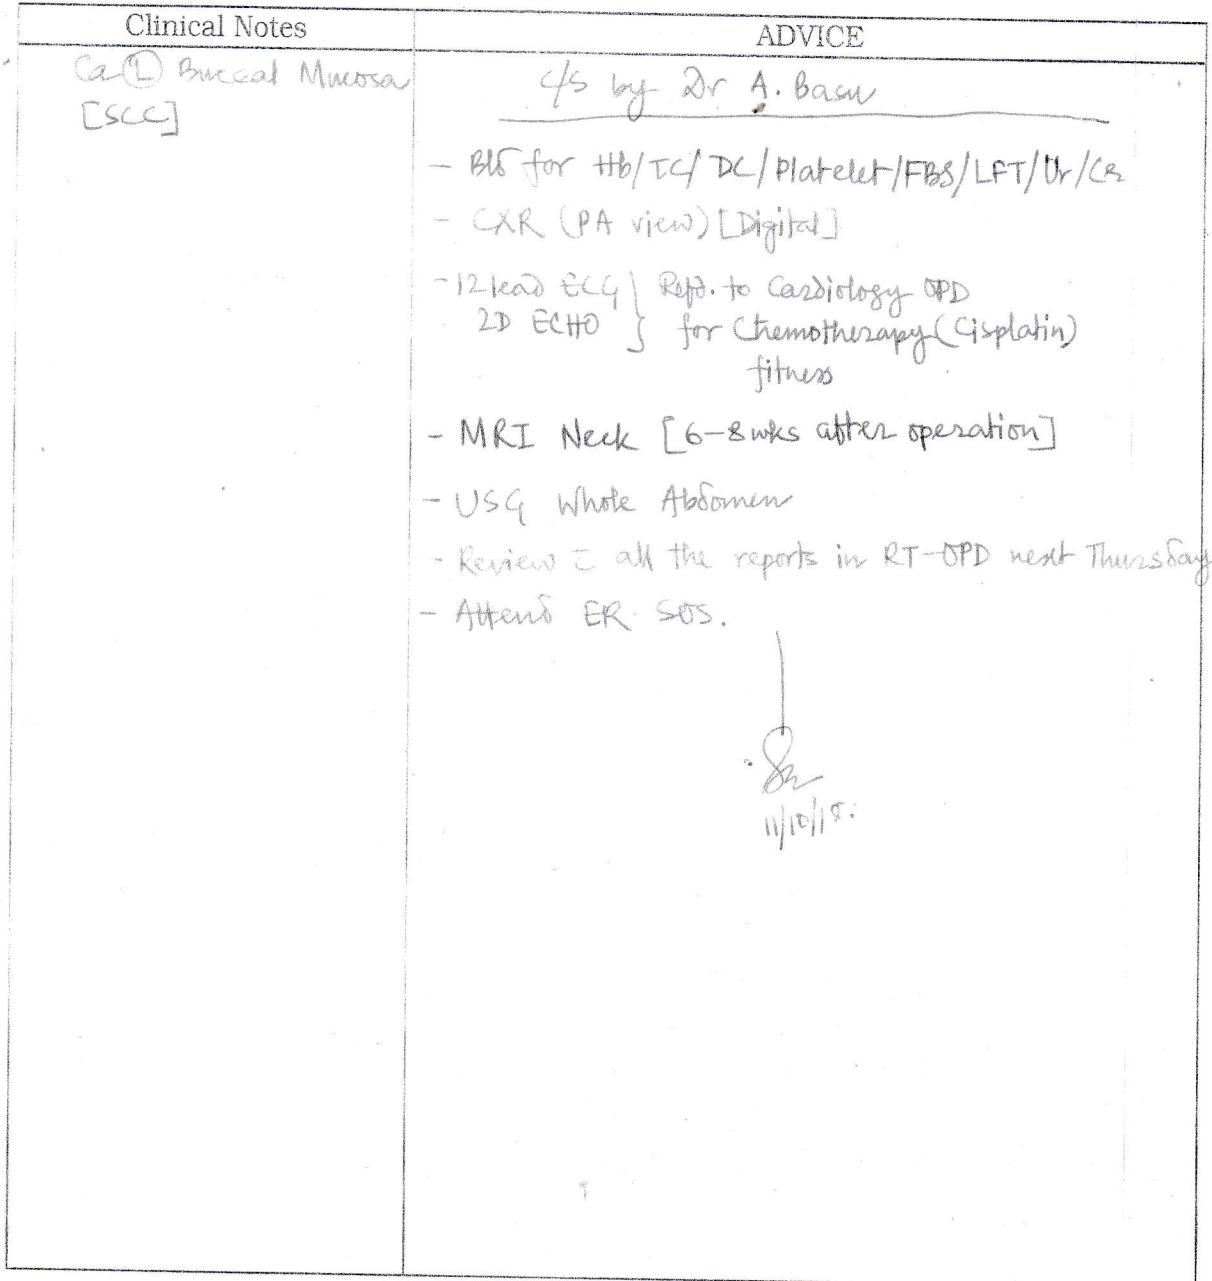 Clinical Notes
ADVICE
Ca Ⓛ Buccal Mucosa
[SCC]
c/s by Dr A. Basu
- Bld for Hb/TC/DC/Platelet/FBS/LFT/Ur/Cr
- CXR (PA view) [Digital]
- 12 lead ECG } Refd. to Cardiology OPD
2D ECHO } for Chemotherapy (Cisplatin)
fitness
- MRI Neck [6-8 wks after operation]
- USG Whole Abdomen
- Review c̄ all the reports in RT-OPD next Thursday
- Attend ER SOS.
11/10/18.